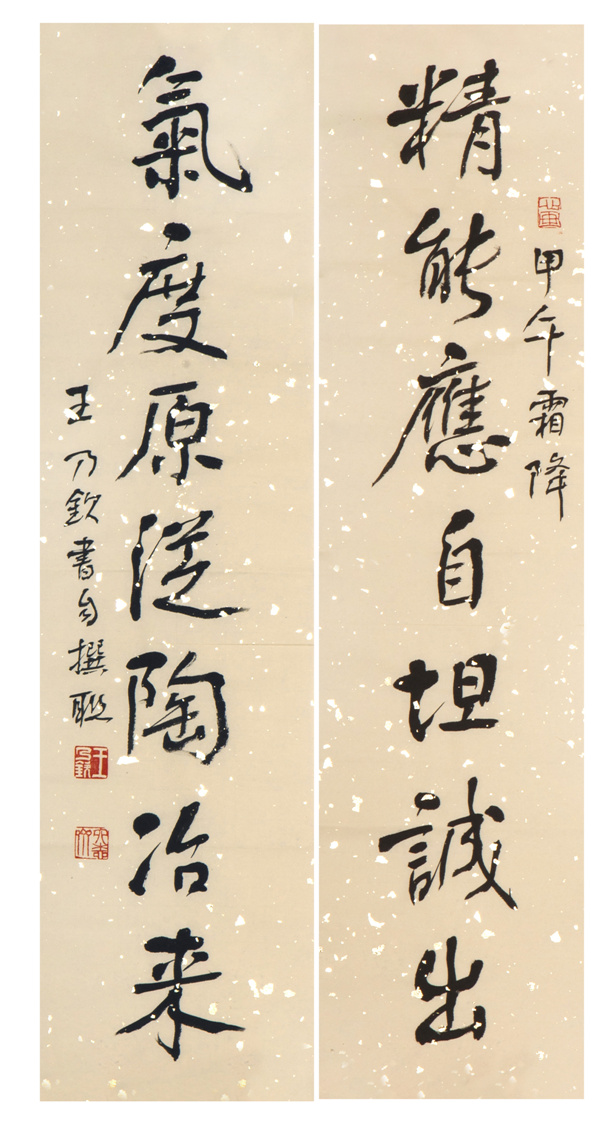 甲午霜降
精能應自坦誠出
氣度原從陶冶来
王乃欽書自撰聯
王乃欽